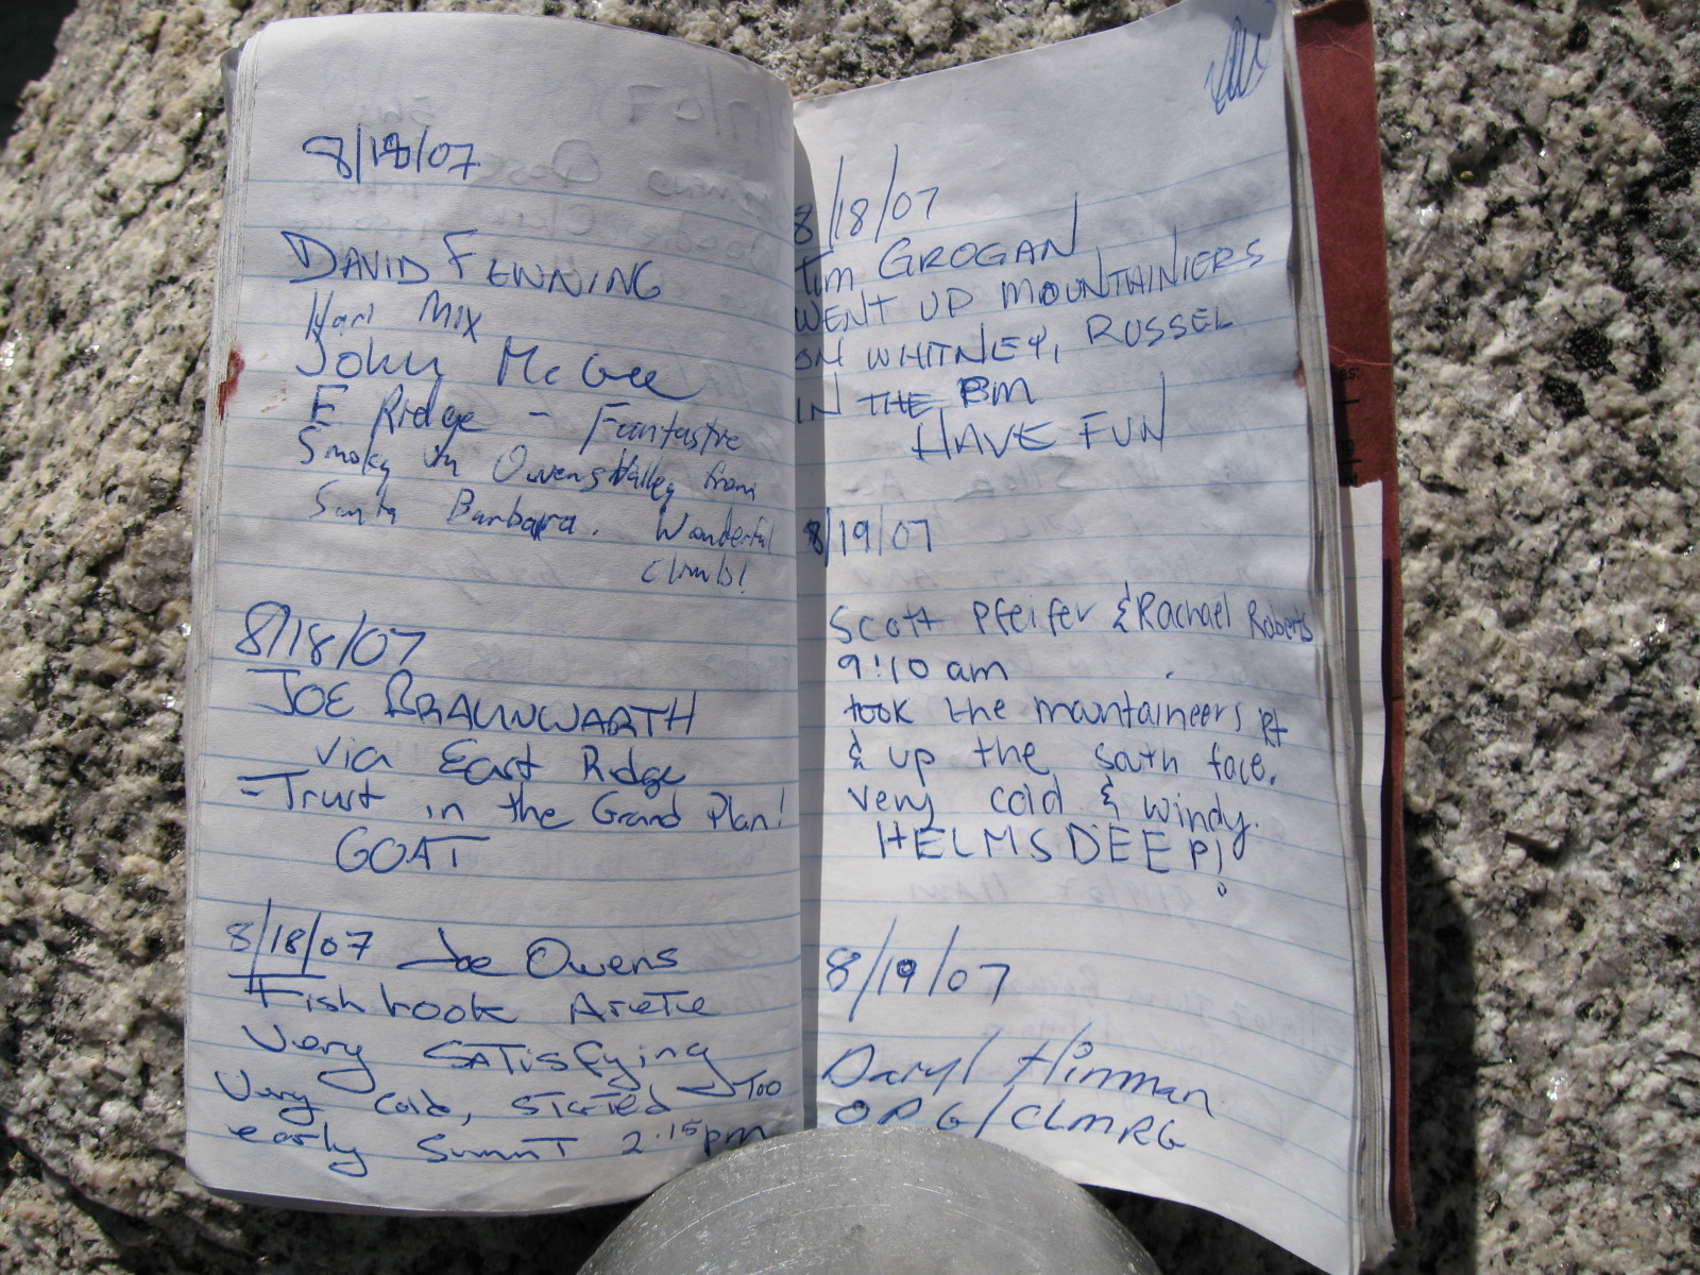 8/18/07
DAVID FEWNING
Hari Mix
John McGee
E Ridge - Fantastic
Smoky in Owens Valley from
Santa Barbara. Wonderful
climb!
8/18/07
JOE BRAUNWARTH
via East Ridge
- Trust in the Grand Plan!
GOAT
8/18/07 Joe Owens
Fishhook Arete
Very SATisfying
Very cold, STarTed Too
early Summit 2:15pm
8/18/07
Tim GROGAN
WENT UP MOUNTHINIERS
ON WHITNEY, RUSSEL
IN THE PM
HAVE FUN
8/19/07
Scott Pfeifer & Rachael Roberts
9:10 am
took the mountaineers rt
& up the south face.
very cold & windy.
HELMS DEEP!
8/19/07
Daryl Hinman
OPG/CLMRG